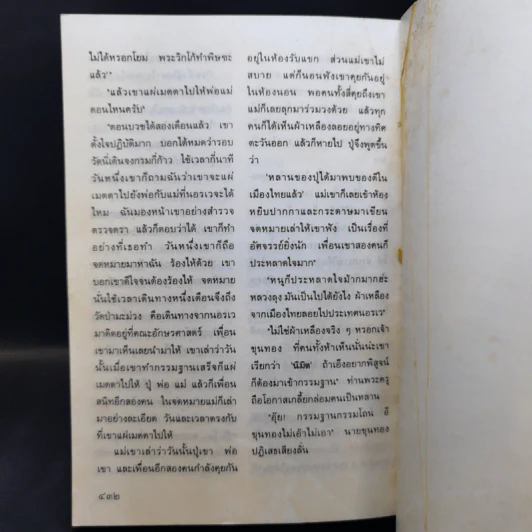 ไม่ได้หรอกโยม พระวิกโก้ทำพิษซะ
แล้ว"
"แล้วเขาแผ่เมตตาไปให้พ่อแม่
ตอนไหนครับ"
"ตอนบวชได้สองเดือนแล้ว เขา
ตั้งใจปฏิบัติมาก บอกได้หมดว่ารอบ
วัดนี่เดินจงกรมกี่ก้าว ใช้เวลากี่นาที
วันหนึ่งเขาก็ถามฉันว่าเขาจะแผ่
เมตตาไปยังพ่อกับแม่ที่นอรเวจะได้
ไหม ฉันมองหน้าเขาอย่างสำรวจ
ตรวจตรา แล้วก็ตอบว่าได้ เขาก็ทำ
อย่างที่เธอทำ วันหนึ่งเขาก็ถือ
จดหมายมาหาฉัน ร้องไห้ด้วย เขา
บอกเขาดีใจจนต้องร้องไห้ จดหมาย
นั้นใช้เวลาเดินทางหนึ่งเดือนจึงถึง
วัดป่ามะม่วง คือเดินทางจากนอรเว
มาติดอยู่ที่คณะอักษรศาสตร์ เพื่อน
เขามาเห็นเลยนำมาให้ เขาเล่าว่าวัน
นั้นเมื่อเขาทำกรรมฐานเสร็จก็แผ่
เมตตาไปให้ ปู่ พ่อ แม่ แล้วก็เพื่อน
สนิทอีกสองคน ในจดหมายแม่ก็เล่า
มาอย่างละเอียด วันและเวลาตรงกับ
ที่เขาแผ่เมตตาไปให้
แม่เขาเล่าว่าวันนั้นปู่เขา พ่อ
เขา และเพื่อนอีกสองคนกำลังคุยกัน
๔๓๒
อยู่ในห้องรับแขก ส่วนแม่เขาไม่
สบาย แต่ก็นอนฟังเขาคุยกันอยู่
ในห้องนอน พอคนทั้งสี่คุยถึงเขา
แม่ก็เลยลุกมาร่วมวงด้วย แล้วทุก
คนก็ได้เห็นผ้าเหลืองลอยอยู่ทางทิศ
ตะวันออก แล้วก็หายไป ปู่จึงพูดขึ้น
ว่า
'หลานของปู่ได้มาพบของดีใน
เมืองไทยแล้ว' แม่เขาก็เลยเข้าห้อง
หยิบปากกาและกระดาษมาเขียน
จดหมายเล่าให้เขาฟัง เป็นเรื่องที่
อัศจรรย์ยิ่งนัก เพื่อนเขาสองคนก็
ประหลาดใจมาก"
"หนูก็ประหลาดใจม้ากมากฮ่ะ
หลวงลุง มันเป็นไปได้ยังไง ผ้าเหลือง
จากเมืองไทยลอยไปประเทศนอรเว"
"ไม่ใช่ผ้าเหลืองจริง ๆ หรอกเจ้า
ขุนทอง ที่คนทั้งห้าเห็นนั่นน่ะเขา
เรียกว่า 'นิมิต' ถ้าเอ็งอยากพิสูจน์
ก็ต้องมาเข้ากรรมฐาน" ท่านพระครู
ถือโอกาสเกลี้ยกล่อมคนเป็นหลาน
"อุ๊ย! กรรมฐานกรรมโถน อี
ขุนทองไม่เอ๊าไม่เอา" นายขุนทอง
ปฏิเสธเสียงลั่น